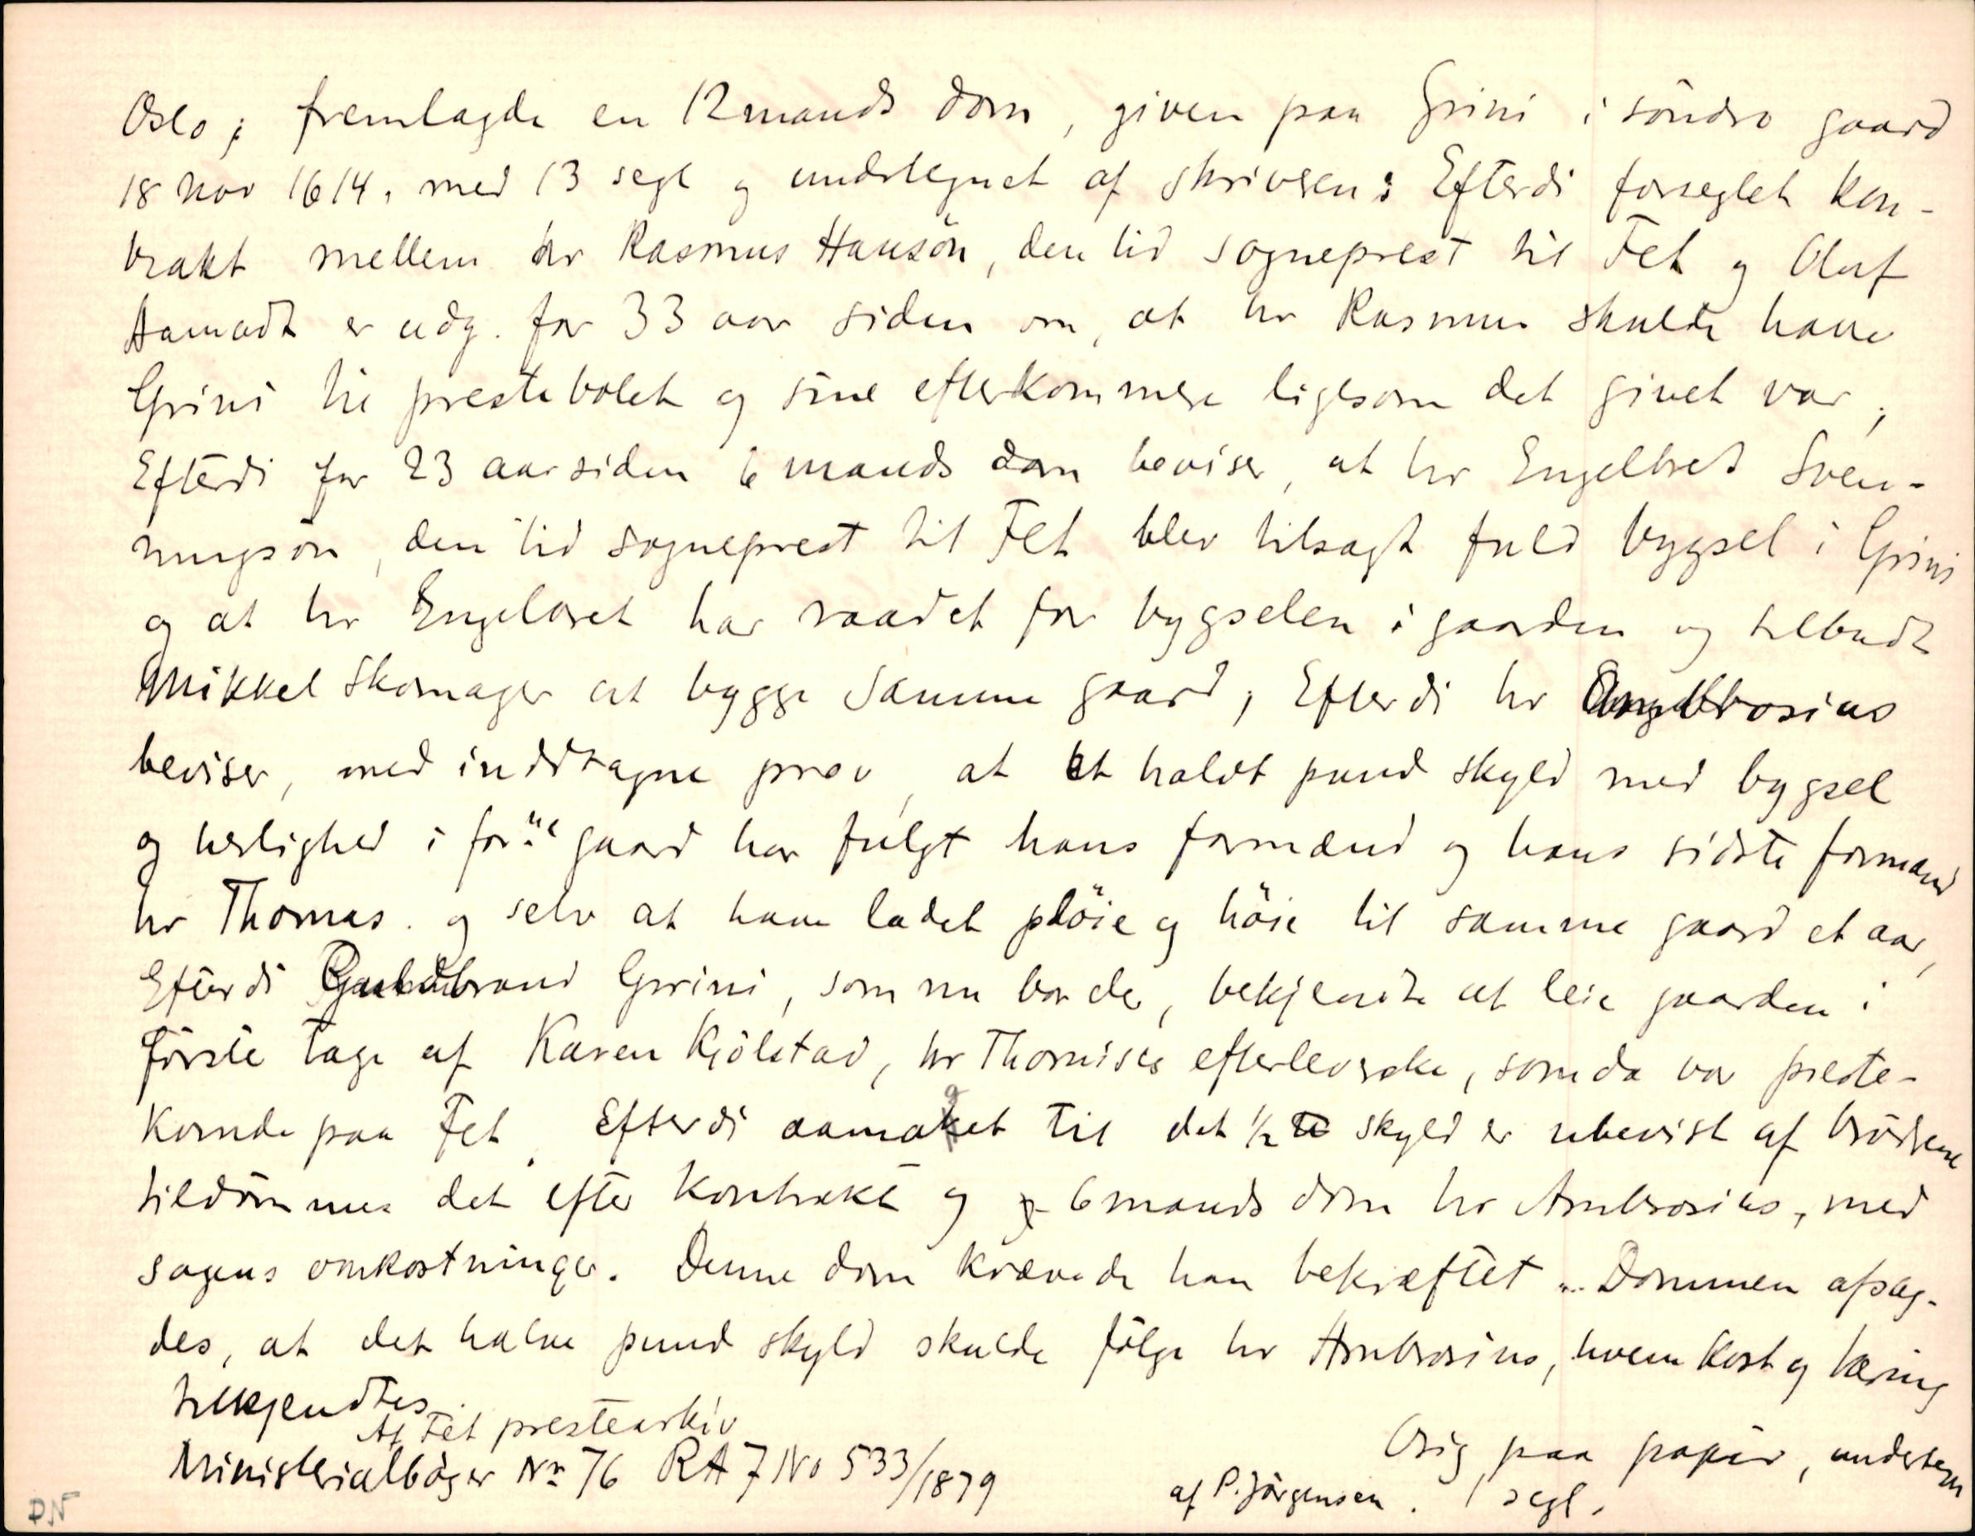 Oslo; fremlagde en 12 mands dom, given paa Grini i söndre gaard
18 nov 1614, med 13 segl og undertegnet af skriveren: Efterdi forseglet kon-
trakt mellem hr Rasmus Hansön, den tid sogneprest til Fet og Oluf
Aamodt er udg. for 33 aar siden om, at hr Rasmus skulde have
Grini til prestebolet og sine efterkommere ligesom det givet var;
Efterdi for 23 aar siden 6 mands dom beviser, at hr Engelbret Sven-
ningsön, den tid sogneprest til Fet blev tilsagt fuld bygsel i Grini
og at hr Engelbret har raadet for bygselen i gaarden og tilbudt
Mikkel Skomager at bygge samme gaard, Efterdi hr Ambrosius
beviser, med inddragne prov, at et halvt pund skyld med bygsel
og herlighed i for:ne gaard har fulgt hans formænd og hans sidste formand
hr Thomas. og selv at have ladet plöie og höie til samme gaard et aar,
Efterdi Gulbrand Grini, som nu bor der, bekjendte at leie gaarden i
förste tage af Karen Kjölstad, hr Thomises efterleverske, som da var preste-
konde paa Fet, Efterdi aamaget til det ½ skyld er ubevist af brödrene
tildömmes det efter kontrakt og 6 mands dom hr Ambrosius, med
sagens omkostninger. Denne dom krævede han bekræftet ... Dommen afsag-
des, at det halve pund skyld skulde fölge hr Ambrosius, hvem kost og tæring
tilkjendtes.
At Fet prestearkiv
Ministerialböger Nr 76 RA 7 No 533/1879
Orig paa papir, undertegn
af P. Jörgensen. 1 segl.
DN